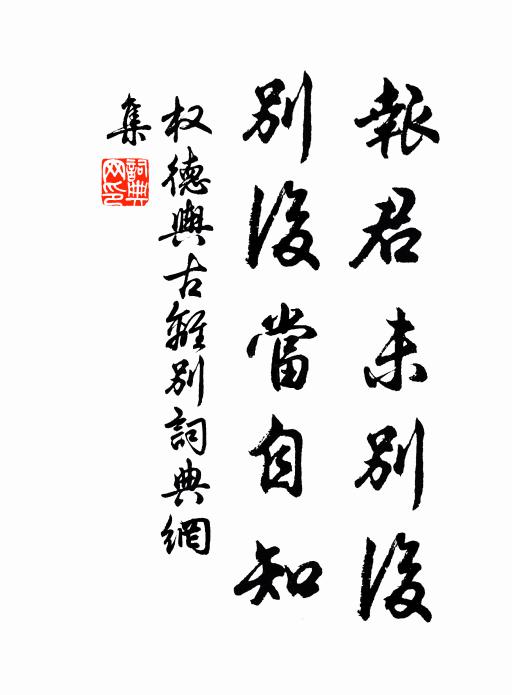 報君未別後
別後當自知
权德輿古離別詞典網
集
詞典
网印